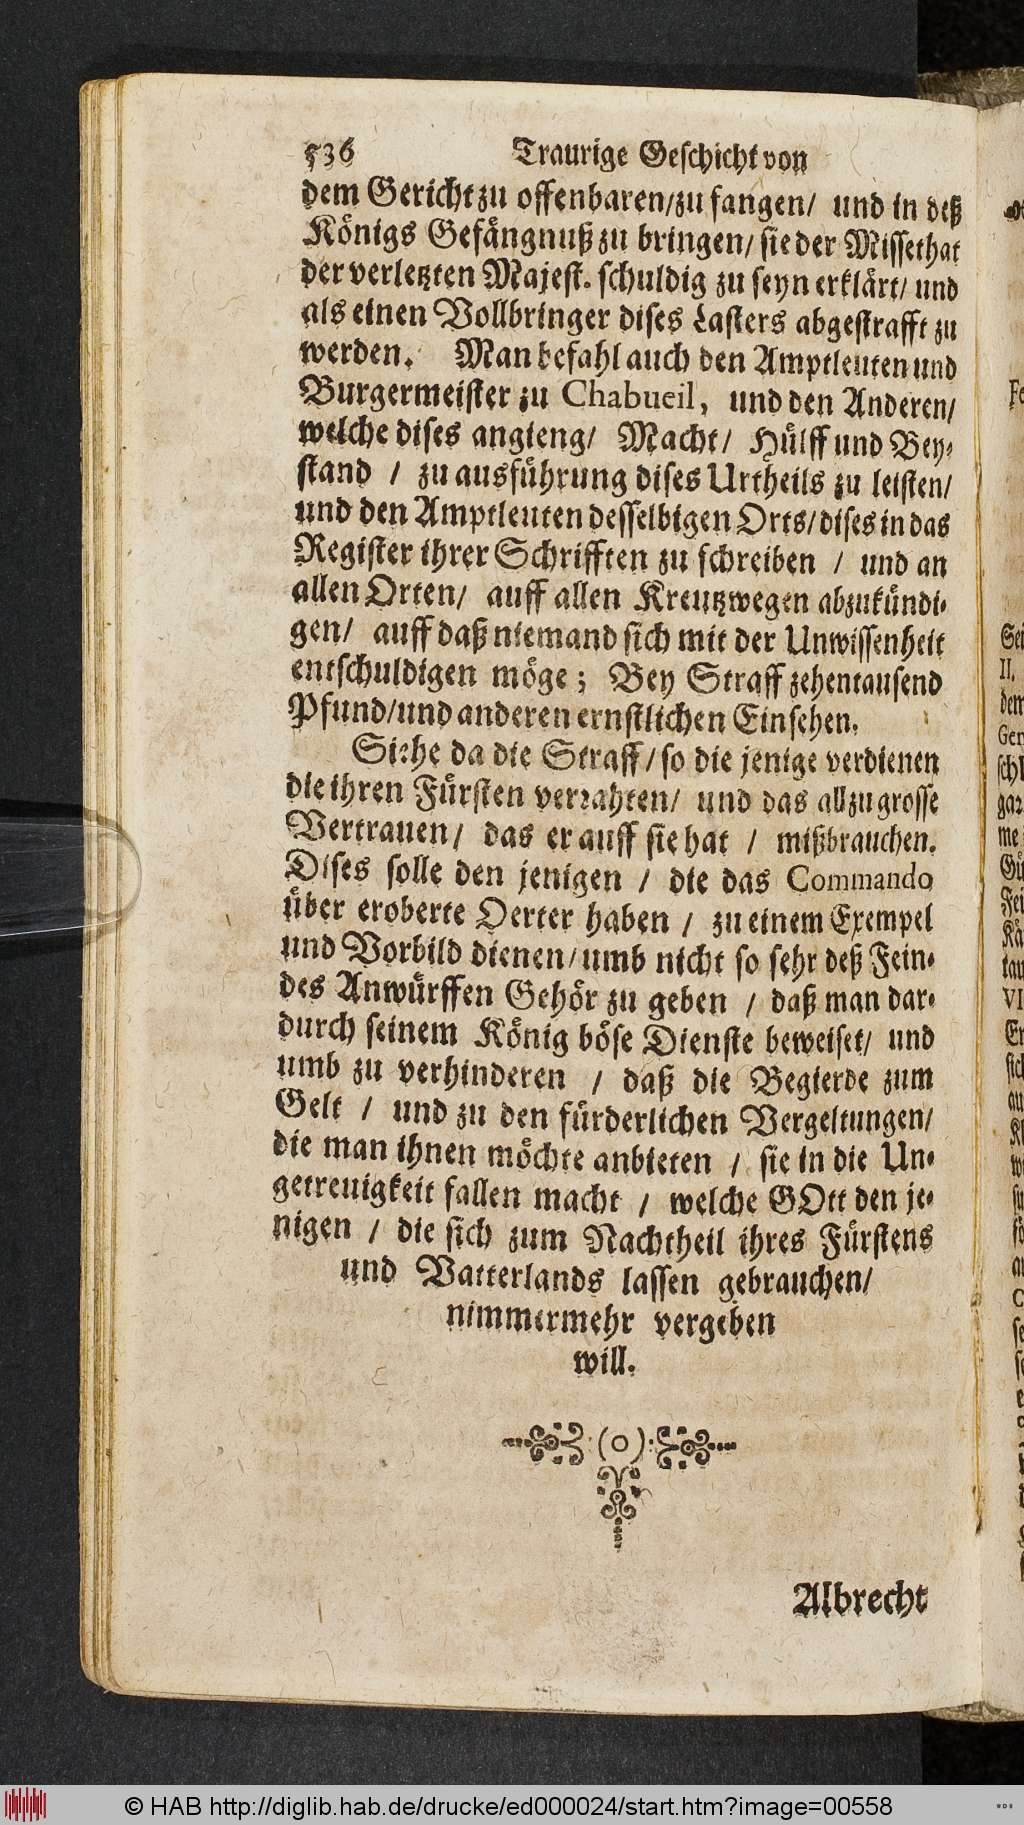 536 Traurige Geschicht von
dem Gericht zu offenbaren/zu fangen/ und in deß
Königs Gefängnuß zu bringen/ sie der Missethat
der verletzten Majest. schuldig zu seyn erklärt/ und
als einen Vollbringer dises Lasters abgestrafft zu
werden. Man befahl auch den Amptleuten und
Burgermeister zu Chabueil, und den Anderen/
welche dises angieng/ Macht/ Hülff und Bey-
stand / zu ausführung dises Urtheils zu leisten/
und den Amptleuten desselbigen Orts/dises in das
Register ihrer Schrifften zu schreiben / und an
allen Orten/ auff allen Kreutzwegen abzukündi-
gen/ auff daß niemand sich mit der Unwissenheit
entschuldigen möge; Bey Straff zehentausend
Pfund/und anderen ernstlichen Einsehen.
Siehe da die Straff/so die jenige verdienen
die ihren Fürsten verrahten/ und das allzugrosse
Vertrauen/ das er auff sie hat / mißbrauchen.
Dises solle den jenigen / die das Commando
über eroberte Oerter haben / zu einem Exempel
und Vorbild dienen/umb nicht so sehr deß Fein-
des Anwürffen Gehör zu geben / daß man dar-
durch seinem König böse Dienste beweiset/ und
umb zu verhinderen / daß die Begierde zum
Gelt / und zu den fürderlichen Vergeltungen/
die man ihnen möchte anbieten / sie in die Un-
getreuigkeit fallen macht / welche GOtt den je-
nigen / die sich zum Nachtheil ihres Fürstens
und Vatterlands lassen gebrauchen/
nimmermehr vergeben
will.
(o)
Albrecht
© HAB http://diglib.hab.de/drucke/ed000024/start.htm?image=00558